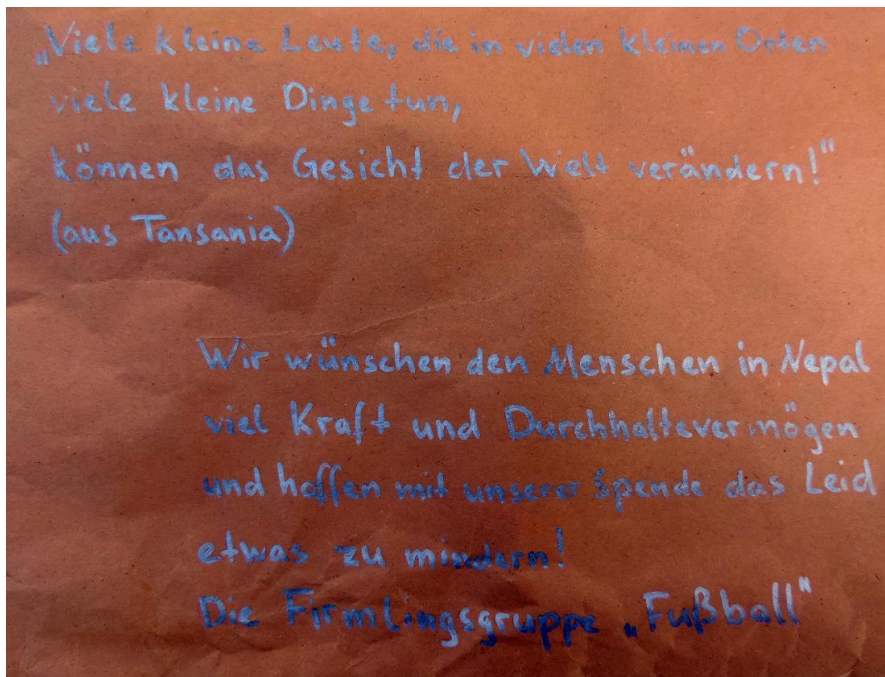 „Viele kleine Leute, die in vielen kleinen Orten
viele kleine Dinge tun,
können das Gesicht der Welt verändern!"
(aus Tansania)
Wir wünschen den Menschen in Nepal
viel Kraft und Durchhaltevermögen
und hoffen mit unserer Spende das Leid
etwas zu mindern!
Die Firmlingsgruppe „Fußball"